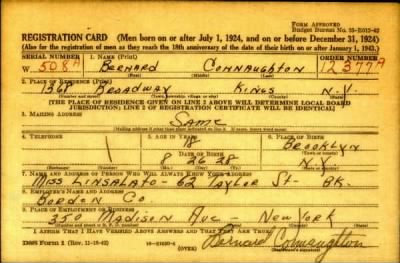 FORM APPROVED
Budget Bureau No. 33-R013-42
REGISTRATION CARD (Men born on or after July 1, 1924, and on or before December 31, 1924)
(Also for the registration of men as they reach the 18th anniversary of the date of their birth on or after January 1, 1943.)
SERIAL NUMBER 1. NAME (Print) ORDER NUMBER
W 508 BERNARD CONNAUGHTON 12377A
(First) (Middle) (Last)
2. PLACE OF RESIDENCE (Print)
1368 BROADWAY KINGS N.Y.
(Number and street) (Town, township, village, or city) (County) (State)
[THE PLACE OF RESIDENCE GIVEN ON LINE 2 ABOVE WILL DETERMINE LOCAL BOARD
JURISDICTION; LINE 2 OF REGISTRATION CERTIFICATE WILL BE IDENTICAL]
3. MAILING ADDRESS
SAME
(Mailing address if other than place indicated on line 2. If same, insert word same)
4. TELEPHONE 5. AGE IN YEARS 6. PLACE OF BIRTH
18 BROOKLYN
DATE OF BIRTH
8 26 28 N.Y.
(Exchange) (Number) (Mo.) (Day) (Yr.) (State or country)
7. NAME AND ADDRESS OF PERSON WHO WILL ALWAYS KNOW YOUR ADDRESS
MISS LINSALATO - 62 TAYLOR ST - BK.
8. EMPLOYER'S NAME AND ADDRESS
BORDEN CO.
9. PLACE OF EMPLOYMENT OR BUSINESS
350 MADISON AVE - NEW YORK
(Number and street or R. F. D. number) (Town) (County) (State)
I AFFIRM THAT I HAVE VERIFIED ABOVE ANSWERS AND THAT THEY ARE TRUE.
DSS Form 1 (Rev. 11-16-42) (OVER) Bernard Connaughton
(Registrant's signature)